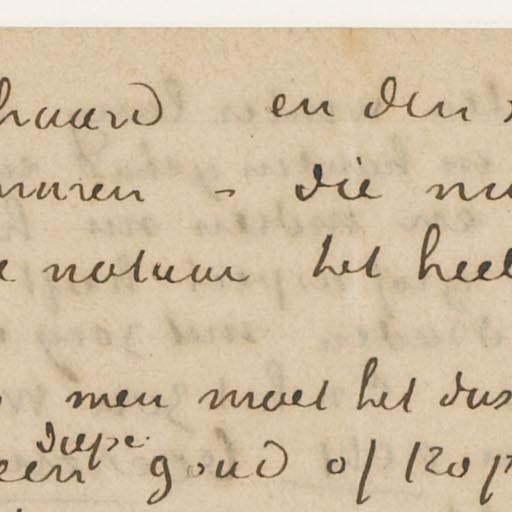 haard en den
maren - die
natuur het heel
men moet het dus
diepe
een goud of kop